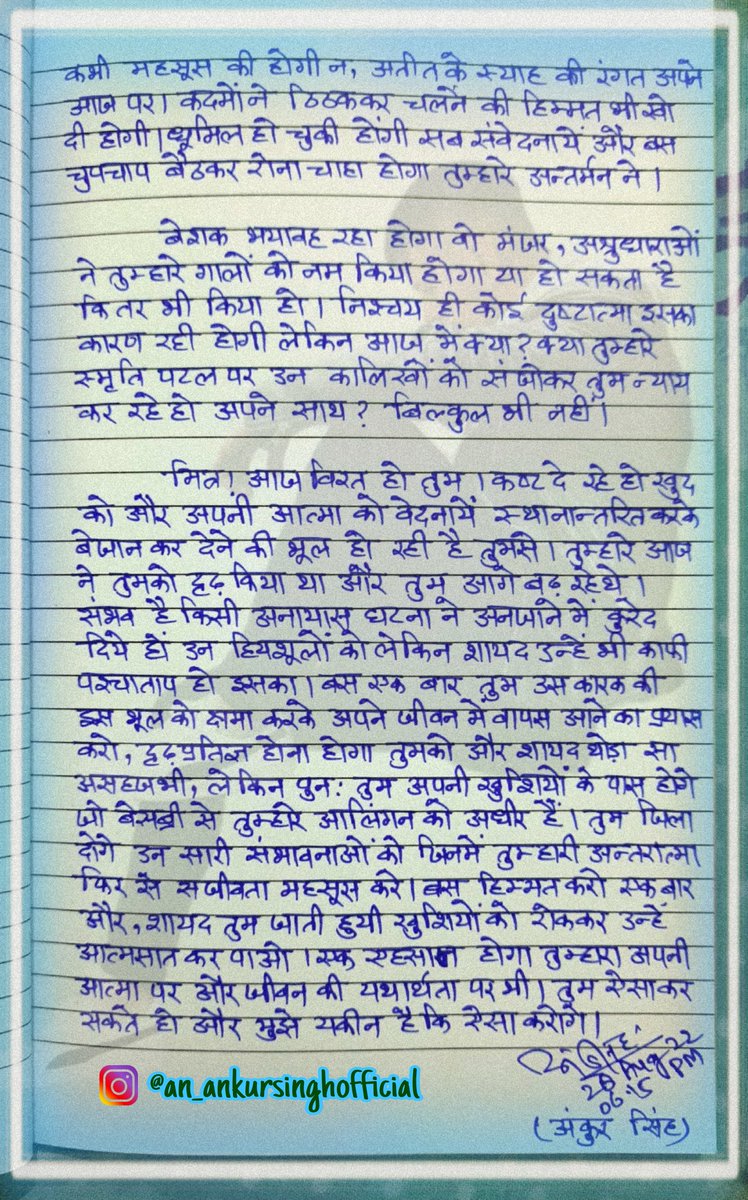 कभी महसूस की होगी न, अतीत के स्याह की रंगत अपने
आज पर। कदमों ने ठिठककर चलने की हिम्मत भी खो
दी होगी। धूमिल हो चुकी होंगी सब संवेदनायें और बस
चुपचाप बैठकर रोना चाहा होगा तुम्हारे अन्तर्मन ने।
बेशक भयावह रहा होगा वो मंजर, अश्रुधाराओं
ने तुम्हारे गालों को नम किया होगा या हो सकता है
कि तर भी किया हो। निश्चय ही कोई दुष्टात्मा इसका
कारण रही होगी लेकिन आज में क्या? क्या तुम्हारे
स्मृति पटल पर उन कालिखों को संजोकर तुम न्याय
कर रहे हो अपने साथ? बिल्कुल भी नहीं।
मित्र! आज विरत हो तुम। कष्ट दे रहे हो खुद
को और अपनी आत्मा को वेदनायें स्थानान्तरित करके
बेजान कर देने की भूल हो रही है तुमसे। तुम्हारे आज
ने तुमको दृढ़ किया था और तुम आगे बढ़ रहे थे।
संभव है किसी अनायास घटना ने अनजाने में कुरेद
दिये हों उन हियशूलों को लेकिन शायद उन्हें भी काफी
पश्चाताप हो इसका। बस एक बार तुम उस कारक की
इस भूल को क्षमा करके अपने जीवन में वापस आने का प्रयास
करो, दृढ़प्रतिज्ञ होना होगा तुमको और शायद थोड़ा सा
असहज भी, लेकिन पुन: तुम अपनी खुशियों के पास होगे
जो बेसब्री से तुम्हारे आलिंगन को अधीर हैं। तुम जिला
दोगे उन सारी संभावनाओं को जिनमें तुम्हारी अन्तरात्मा
फिर से सजीवता महसूस करे। बस हिम्मत करो एक बार
और, शायद तुम जाती हुयी खुशियों को रोककर उन्हें
आत्मसात कर पाओ। एक एहसान होगा तुम्हारा अपनी
आत्मा पर और जीवन की यथार्थता पर भी। तुम ऐसा कर
सकते हो और मुझे यकीन है कि ऐसा करोगे।
(अंकुर सिंह)
@an_ankursinghofficial